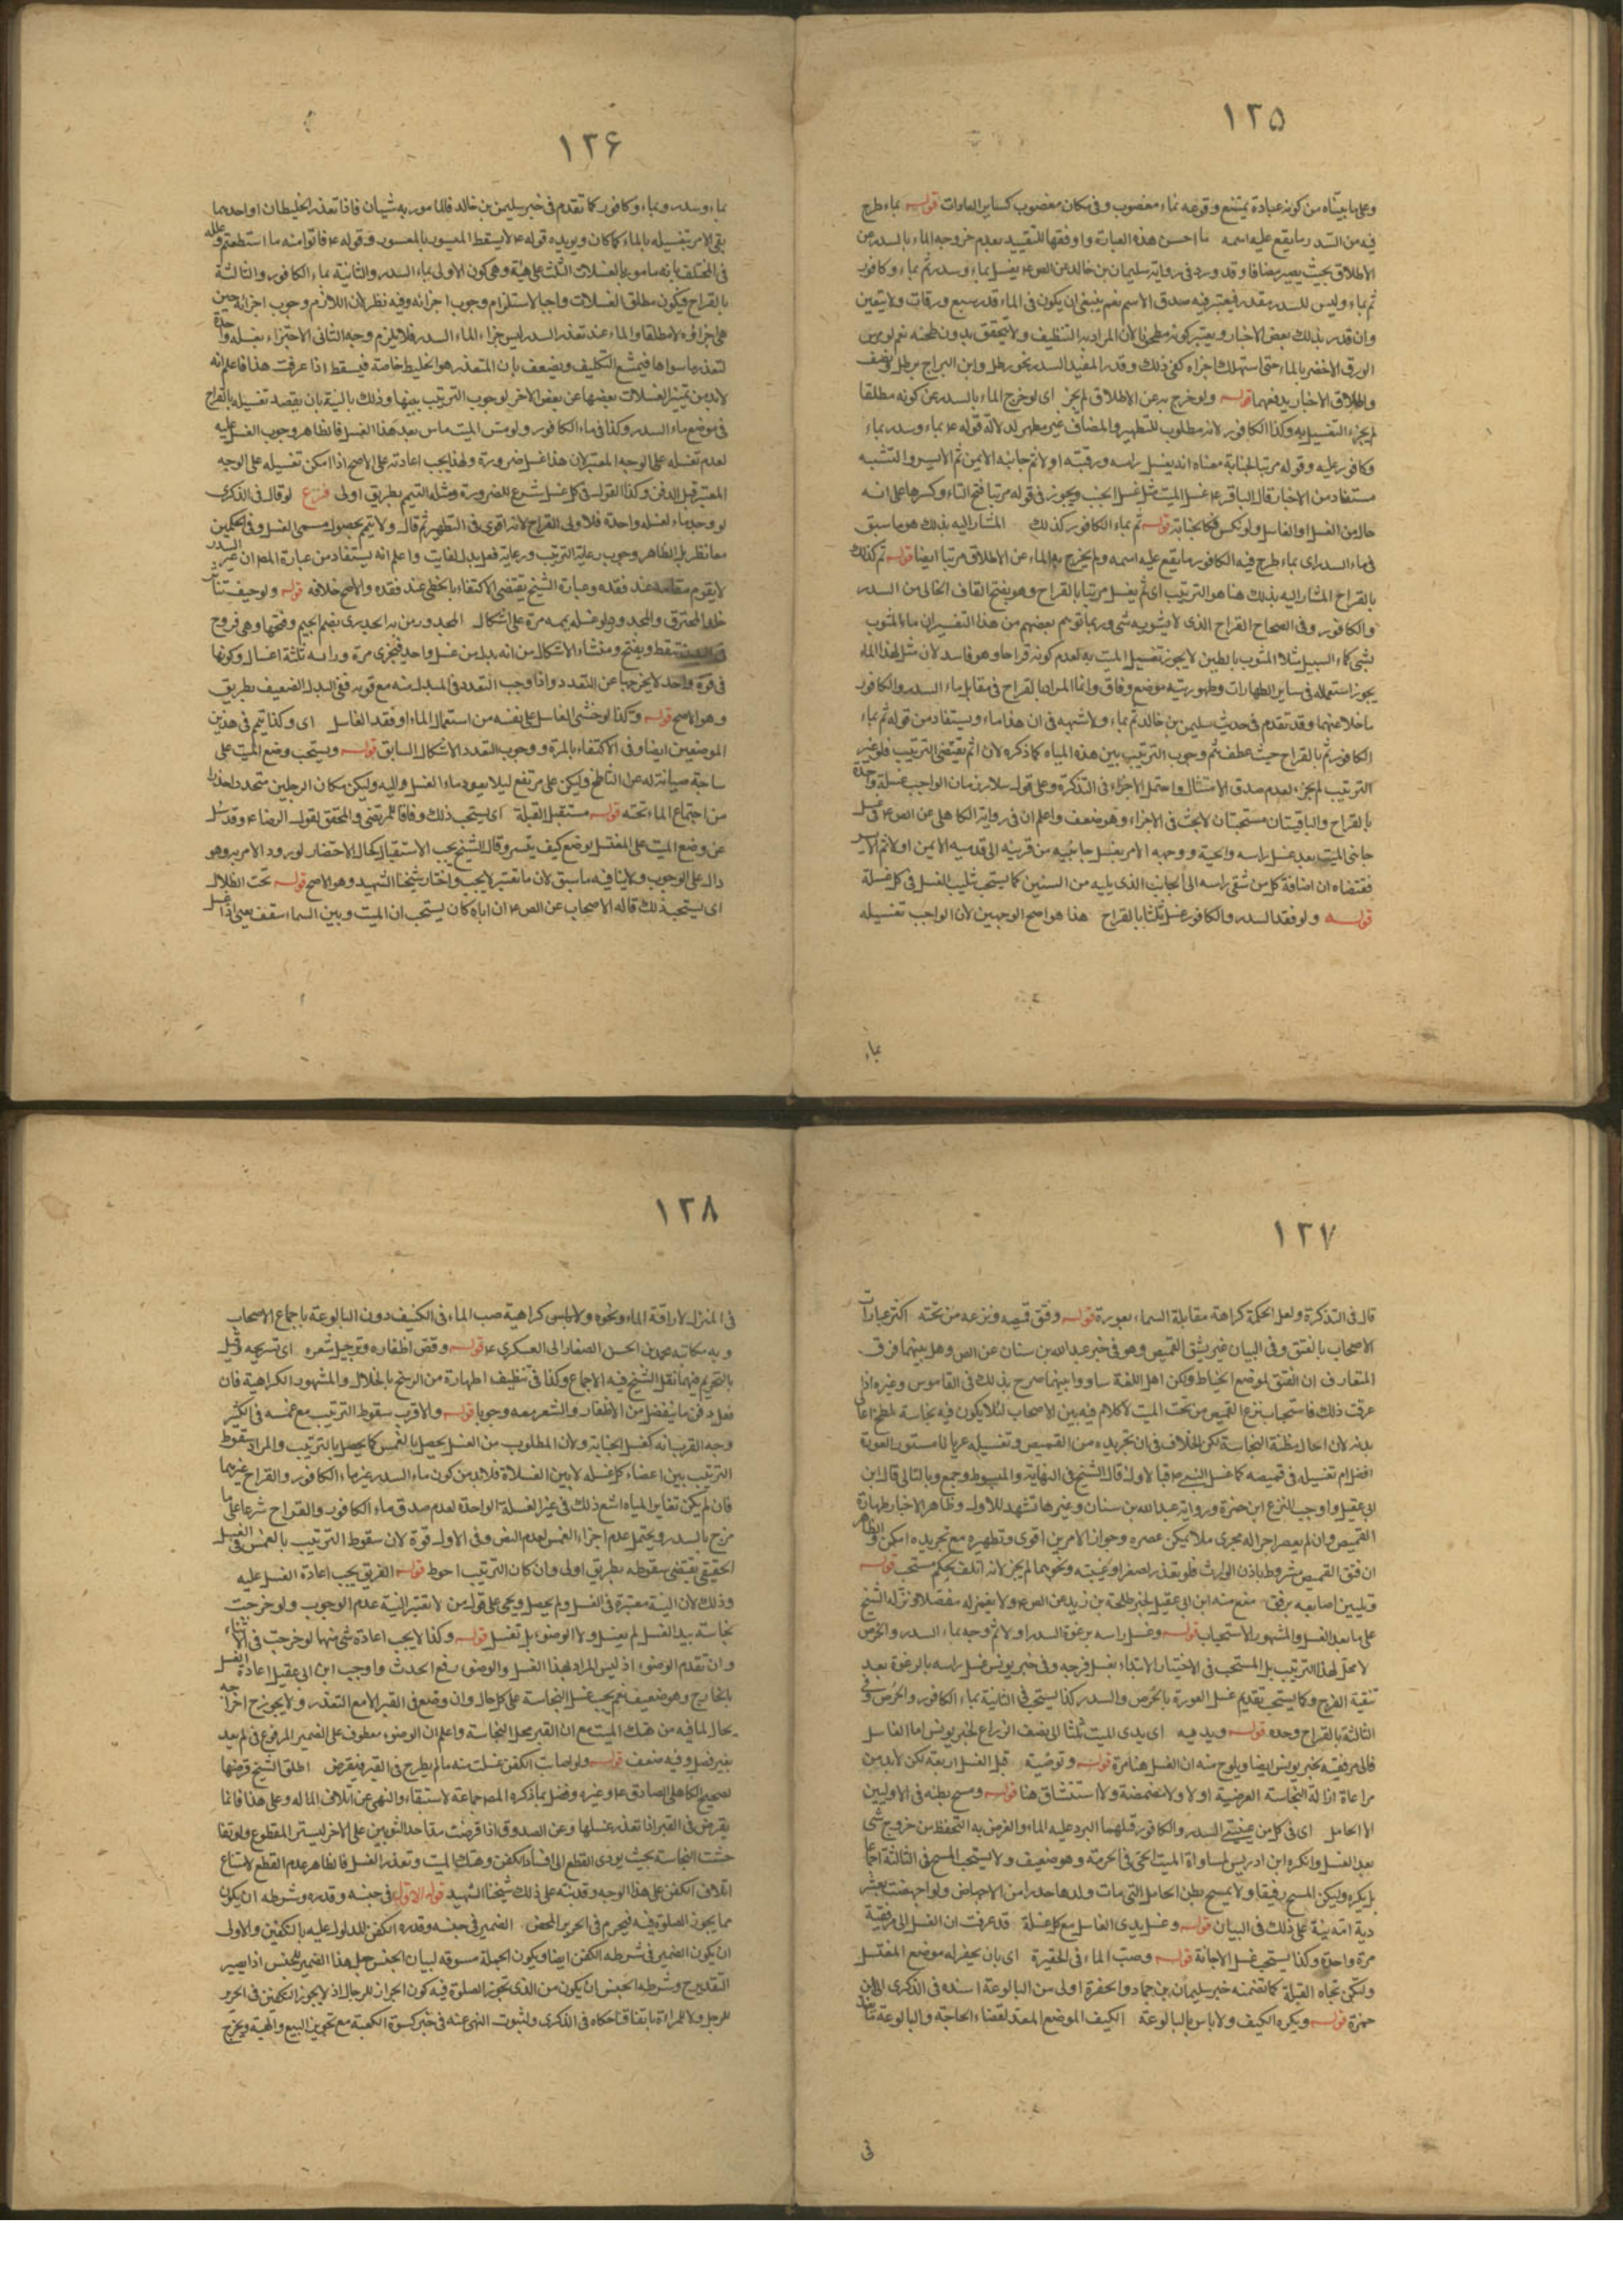 ١٢٥
وعلى ما بيناه من كونه عبادة يمتنع وقوعه بماء مغصوب وفى مكان مغصوب كساير العبادات قوله بماء طرح
فيه من السدر ما يقع عليه اسمه ما احسن هذه العبارة واوفقها للتقييد بعدم خروجه الماء بالسدر عن
الاطلاق بحيث يصير مضافا وقد ورد فى رواية سليمان بن خالد عن الص ع يغسل بماء وسدر ثم بماء وكافور
ثم بماء وليس للسدر مقدر فيعتبر فيه صدق الاسم نعم ينبغى ان يكون فى الماء قدر سبع ورقات ولا يتعين
وان قدر بذلك بعض الاخبار ويعتبر كونه مطحونا لان المراد به التنظيف ولا يتحقق بدون طحنه نعم لو مرس
الورق الاخضر بالماء حتى استهلك اجزاه كفى ذلك وقدر المفيد السدر بنحو رطل وابن البراج برطل ونصف
واطلاق الاخبار يدفعهما قوله ولو خرج به عن الاطلاق لم يجز اى لو خرج الماء بالسدر عن كونه مطلقا
لم يجزء التغسيل به وكذا الكافور لانه مطلوب للتطهير والمضاف غير مطهر لدلالة قوله ع بماء وسدر بماء
وكافور عليه وقوله مرتبا كالجنابة معناه انه يغسل راسه ورقبته اولا ثم جانبه الايمن ثم الايسر والتشبه
مستفاد من الاخبار قال الباقر ع غسل الميت مثل غسل الجنب ويجوز فى قوله مرتبا فتح التاء وكسرها على انه
حال من الغسل او الغاسل ولو نكس فكالجنابة قوله ثم بماء الكافور كذلك المشار اليه بذلك هو ما سبق
فى ماء السدر اى بماء طرح فيه الكافور ما يقع عليه اسمه ولم يخرج به الماء عن الاطلاق مرتبا ايضا قوله ثم كذلك
بالقراح المشار اليه بذلك هنا هو الترتيب اى ثم يغسل مرتبا بالقراح وهو بفتح القاف الخالى من السدر
والكافور وفى الصحاح القراح الذى لا يشوبه شى وربما توهم بعضهم من هذا التفسير ان ماء المشوب
بشى كماء السيل مثلا المشوب بالطين لا يجوز تغسيل الميت به لعدم كونه قراحا وهو فاسد لان مثل هذا الماء
يجوز استعماله فى ساير الطهارات وطهوريته موضع وفاق وانما المراد بالقراح فى مقابل ماء السدر والكافور
ما خلا عنهما وقد تقدم فى حديث سليمن بن خالد ثم بماء ولا شبهه فى ان هذا ماء ويستفاد من قوله ثم بماء
الكافور ثم بالقراح حيث عطف بثم وجوب الترتيب بين هذه المياه كما ذكره لان ثم يقتضى الترتيب فلو غير
الترتيب لم يجزء لعدم صدق الامتثال واحتمل الاجزاء فى التذكرة وعلى قول سلار بان الواجب غسلة واحدة
بالقراح والباقيتان مستحبتان لا بحث فى الاجزاء وهو ضعف واعلم ان فى رواية الكاهلى عن الص ع فى غسل
جانبى الميت بعد غسل راسه ولحيته ووجهه الامر بغسل جانبيه من قرنيه الى قدميه الايمن اولا ثم الايسر
فمقتضاه ان اضافة كل من شقى راسه الى الجانب الذى يليه من السنين كما يستحب تثليث الغسل فى كل غسلة
قوله ولو فقد السدر والكافور غسل ثلثا بالقراح هذا هو اصح الوجهين لان الواجب تغسيله
بماء
١٢۶
بماء وسدر وبماء وكافور كما تقدم فى خبر سليمن بن خالد فالمامور به شيئان فاذا تعذر الخليطان او احدهما
بقى الامر بتغسيله بالماء كما كان ويويده قوله ع لا يسقط الميسور بالمعسور وقوله ع فاتوا منه ما استطعتم وعلله
فى المختلف بانه مامور بالغسلات الثلث على هيئة وهى كون الاولى بماء السدر والثانية بماء الكافور والثالثة
بالقراح فيكون مطلق الغسلات واجبا لاستلزام وجوب اجزائه وفيه نظر لان اللازم وجوب اجزائه حين
هى اجزاؤه لا مطلقا والماء عند تعذر السدر ليس جزء الماء السدر فلا يلزم وجه الثانى الاجتزاء بغسلة واحدة
لتعذر ما سواها فيمتنع التكليف ويضعف بان المتعذر هو الخليط خاصة فيسقط اذا عرفت هذا فاعلم انه
لا بد من تمييز الغسلات بعضها عن بعض الاخر لوجوب الترتيب بينها وذلك بالنية بان يقصد تغسيله بالقراح
فى موضع ماء السدر وكذا فى ماء الكافور ولو مس الميت ماس بعد هذا الغسل فالظاهر وجوب الغسل عليه
لعدم تغسله على الوجه المعتبر لان هذا غسل ضرورة ولهذا يجب اعادته على الاصح اذا امكن تغسيله على الوجه
المعتبر قبل الدفن وكذا القول فى كل غسل شرع للضرورة ومثله التيمم بطريق اولى فرع لو قال فى الذكرى
لو وجد ماء لغسله واحدة فلاولى القراح لانه اقوى فى التطهير ثم قال ولا يتمم بحصول مسمى الغسل وفى الحكمين
معا نظر بل الظاهر وجوب رعاية الترتيب ورعاية فعل بدل الفايت واعلم انه يستفاد من عبارة المص ان غير السدر
لا يقوم مقامه عند فقده وعبارة الشيخ يقتضى الاكتفاء بالخطمى عند فقده والاصح خلافه قوله ولو خيف تناثر
جلد المحترق والمجدور لو غسله يممه مرة على اشكال المجدور من به الجدرى بضم الجيم وفتحها وهى قروح
تنقط ويفتح ومنشاء الاشكال من انه بدل من غسل واحد فيجزى مرة وراسه ثلثة اغسال وكونها
فى قوة واحد لا يخرجها عن التعدد واذا وجب التعدد فى المبدل منه مع قوته ففى البدل الضعيف بطريق
وهو الاصح قوله وكذا لو خشى الغاسل على نفسه من استعمال الماء او فقد الغاسل اى وكذا يتيمم فى هذين
الموضعين ايضا وفى الاكتفاء بالمرة ووجوب التعدد الاشكال السابق قوله ويستحب وضع الميت على
ساجة صيانة له عن التلطخ وليكن على مرتفع ليلا يعود ماء الغسل واليه وليكن مكان الرجلين منحدرا حذرا
من اجتماع الماء تحته قوله مستقبل القبلة اى يستحب ذلك وفاقا للمرتضى والمحقق لقول الرضا ع وقد سئل
عن وضع الميت على المغتسل يوضع كيف تيسر وقال الشيخ يجب الاستقبال كحال الاحتضار لورود الامر به وهو
دال على الوجوب ولا ينافيه ما سبق لان ما تعسر لا يجب واختار شيخنا الشهيد وهو الاصح قوله تحت الظلال
اى يستحب ذلك قاله الاصحاب عن الص ع ان اباه كان يستحب ان الميت وبين السما سقف يعنى اذا غسل
١٢٧
قال فى التذكرة ولعل الحكمة كراهة مقابلة السماء بعورة قوله وفتق قميصه ونزعه من تحته اكثر عبارات
الاصحاب بالفتق وفى البيان غير يشق القميص وهو فى خبر عبد الله بن سنان عن الص وهل بينهما فرق
المتعارف ان الفتق لموضع الخياط ولكن اهل اللغة ساووا بينهما صرح بذلك فى القاموس وغيره اذا
عرفت ذلك فاستحباب نزع القميص من تحت الميت لا كلام فيه بين الاصحاب لئلا يكون فيه نجاسة تلطخ اعالى
بدنه لان الحال مظنة النجاسة لكن الخلاف فى ان تجريده من القميص وتغسيله عريانا مستور العورة
افضل ام تغسيله فى قميصه كما غسل النبى ص فبالاول قال الشيخ فى النهاية والمبسوط وجمع وبالثانى قال ابن
ابى عقيل واوجب النزع ابن حمزة ورواية عبد الله بن سنان وغيرها تشهد للاول وظاهر الاخبار طهارة
القميص وان لم يعصر اجراله مجرى ما لا يمكن عصره وجواز الامرين اقوى وتطهيره مع تجريده امكن والظاهر
ان فتق القميص مشروط باذن الوارث فلو تعذر لصغر او غيبته ونحوهما لم يجز لانه اتلاف بحكم مستحب قوله
وتليين اصابعه برفق منع منه ابن ابى عقيل لخبر طلحة بن زيد عن الص ع ولا يغمز له مفصلا ونزله الشيخ
على ما بعد الغسل والمشهور الاستحباب قوله وغسل راسه برغوة السدر اولا ثم فرجه بماء السدر والحرض
لا محل لهذا الترتيب بل المستحب فى الاختيار الابتداء بغسل فرجه وفى خبر يونس غسل راسه بالرغوة بعد
تنقية الفرج وكما يستحب تقديم غسل العورة بالحرض والسدر كذا يستحب فى الثانية بماء الكافور والحرض وفى
الثالثة بالقراح وحده قوله ويديه اى يدى الميت ثلثا الى نصف الذراع لخبر يونس اما الغاسل
فالى مرفقيه بخبر يونس ايضا ويلوح منه ان الغسل هنا مرة قوله وتوضية قبل الغسل اربعة لكن لا بد من
مراعاة ازالة النجاسة العرضية اولا ولا مضمضة ولا استنشاق هنا قوله ومسح بطنه فى الاوليين
الا الحامل اى فى كل من غسلتى السدر والكافور قبلهما البرد عليه الماء والغرض به التحفظ من خروج شى
بعد الغسل وانكره ابن ادريس لمساواة الميت الحى فى الحرمة وهو ضعيف ولا يستحب المسح فى الثالثة اجماعا
بل يكره وليكن المسح رفيقا ولا يمسح بطن الحامل التى مات ولدها حذرا من الاجهاض ولو اجهضت بعشر
دية امه بينة على ذلك فى البيان قوله وغسل يدى الغاسل مع كل غسلة قد عرفت ان الغسل الى مرفقيه
مرة واحدة وكذا يستحب غسل الاجانة قوله وصب الماء فى الحفيرة اى بان يحفر له موضع المغتسل
ولتكن تجاه القبلة كما تضمنه خبر سليمان بن حماد والحفرة اولى من البالوعة اسنده فى الذكرى الى ابن
حمزة قوله ويكره الكنيف ولا باس بالبالوعة الكنيف الموضع المعد لقضاء الحاجة والبالوعة ثقب
فى
١٢٨
فى المنزل لاراقة الماء ونحوه ولا باس كراهية صب الماء فى الكنيف دون البالوعة باجماع الاصحاب
وبه مكاتبة محمد بن الحسن الصفار الى العسكرى ع قوله وقص اظفاره وترجيل شعره اى تسريحه وقيل
بالتحريم فيهما نقل الشيخ فيه الاجماع وكذا فى تنظيف اظهارة من الوسخ بالخلال والمشهور الكراهية فان
فعل دفن ما ينفصل من الاظفار والشعر معه وجوبا قوله والاقرب سقوط الترتيب مع غمسه فى الكثير
وجه القرب انه كغسل الجنابة ولان المطلوب من الغسل يحصل بالغمس كما يحصل بالترتيب والمراد سقوط
الترتيب بين اعضاء كل غسله لا بين الغسلات فلا بد من كون ماء السدر غير ماء الكافور والقراح غيرهما
فان لم يكن تغاير المياه اشع ذلك فى غير الغسلة الواحدة لعدم صدق ماء الكافور والقراح شرعا على ما
مزج بالسدر ويحتمل عدم اجزاء الغمس لعدم النص وفى الاول قوة لان سقوط الترتيب بالغمس فى الغسل
الحقيقى يقتضى سقوطه بطريق اولى وان كان الترتيب احوط قوله الغريق يجب اعادة الغسل عليه
وذلك لان النية معتبرة فى الغسل ولم يحصل ويجى على قول من لا يعتبر النية عدم الوجوب ولو خرجت
نجاسة بعد الغسل لم يغسل ولا الوضوء بل تغسل قوله وكذا لا يجب اعادة شى منها لو خرجت فى الاثناء
وان تقدم الوضوء اذ ليس المراد بهذا الغسل والوضوء رفع الحدث واوجب ابن ابى عقيل اعادة الغسل
بالخارج وهو ضعيف نعم يجب غسل النجاسة على كل حال وان وضع فى القبر الا مع التعذر ولا يجوز اخراجه
بحال لما فيه من هتك الميت مع ان القبر محل النجاسة واعلم ان الوضوء معطوف على الضمير المرفوع فى لم يعد
بغير فصل وفيه ضعف قوله ولو اصابت الكفن غسلت منه ما لم يطرح فى القبر فيقرض اطلق الشيخ قرضها
لصحيح الكاهلى الصادق ع وغيره وفصل بما ذكره المص جماعة لاستبقاء والنهى عن اتلاف المال وعلى هذا فانما
يقرض فى القبر اذا تعذر غسلها وعن الصدوق اذا قرضت مد احد الثوبين على الاخر ليستر المقطوع ولو تفا
حشت النجاسة بحيث يودى القطع الى افساد الكفن وهتك الميت وتعذر الغسل فالظاهر عدم القطع لامتناع
اتلاف الكفن على هذا الوجه وقد نبه على ذلك شيخنا الشهيد قوله الاول فى جنسه وقدره وشرطه ان يكون
مما يجوز الصلوة فيه فيحرم فى الحرير المحض الضمير فى جنسه وقدره الكفن المدلول عليه بالتكفين والاولى
ان يكون الضمير فى شرطه الكفن ايضا ويكون الجملة مسوقه لبيان الجنس جعل هذا الضمير للجنس اذا يصير
التقدير ح وشرطه الجنس ان يكون من الذى تجوز الصلوة فيه كون الحيوان للرجال اذ لا يجوز التكفين فى الحرير
للرجل ولا للمراة باتفاقنا حكاه فى الذكرى ولثبوت النهى عنه فى خبر كسوة الكعبة مع تجويز البيع والهبة ويخرج